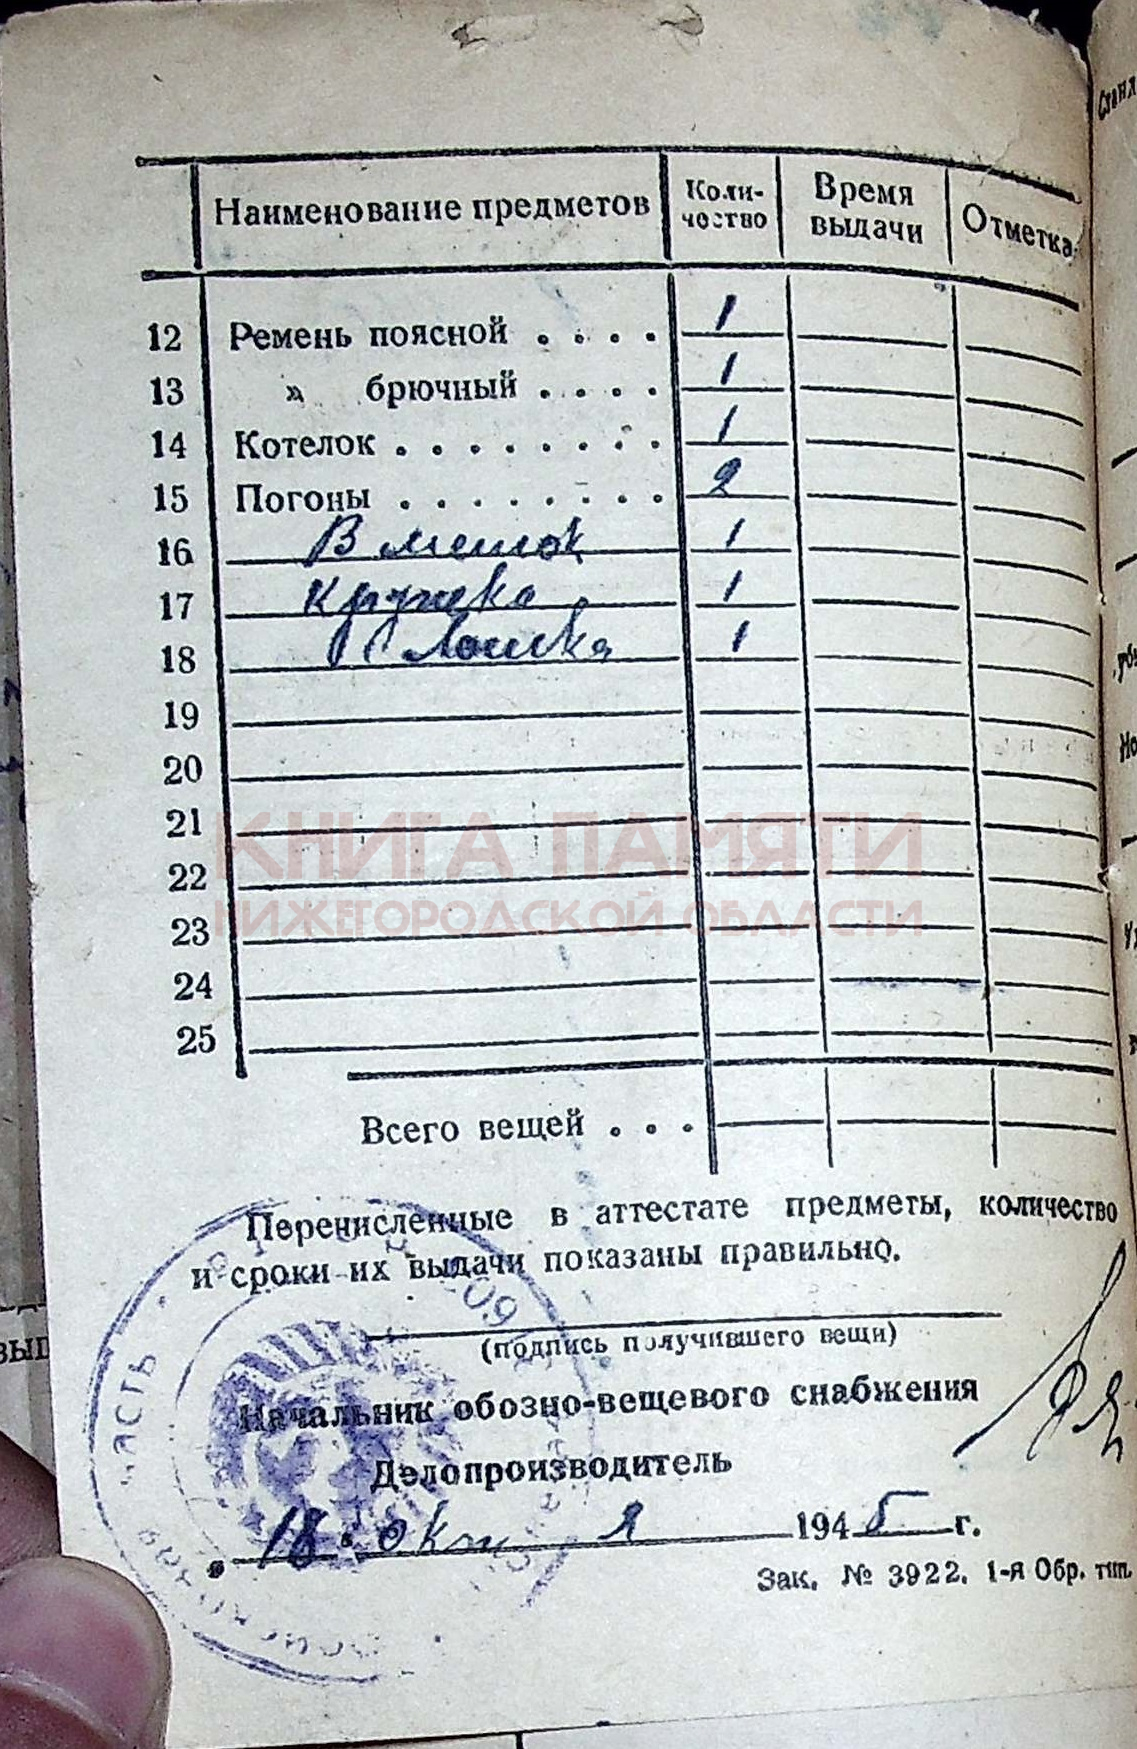 Наименование предметов Коли-чество Время выдачи Отметка
12 Ремень поясной . . . . 1
13 » брючный . . . . 1
14 Котелок . . . . . . . . 1
15 Погоны . . . . . . . . 2
16 В мешок 1
17 Кружка 1
18 Ложка 1
19
20
21
КНИГА ПАМЯТИ
22
НИЖЕГОРОДСКОЙ ОБЛАСТИ
23
24
25
Всего вещей . . .
Перечисленные в аттестате предметы, количество
и сроки их выдачи показаны правильно.
(подпись получившего вещи)
Начальник обозно-вещевого снабжения
Делопроизводитель
„ 18 " 194 5 г.
Зак. № 3922. 1-я Обр. тип.